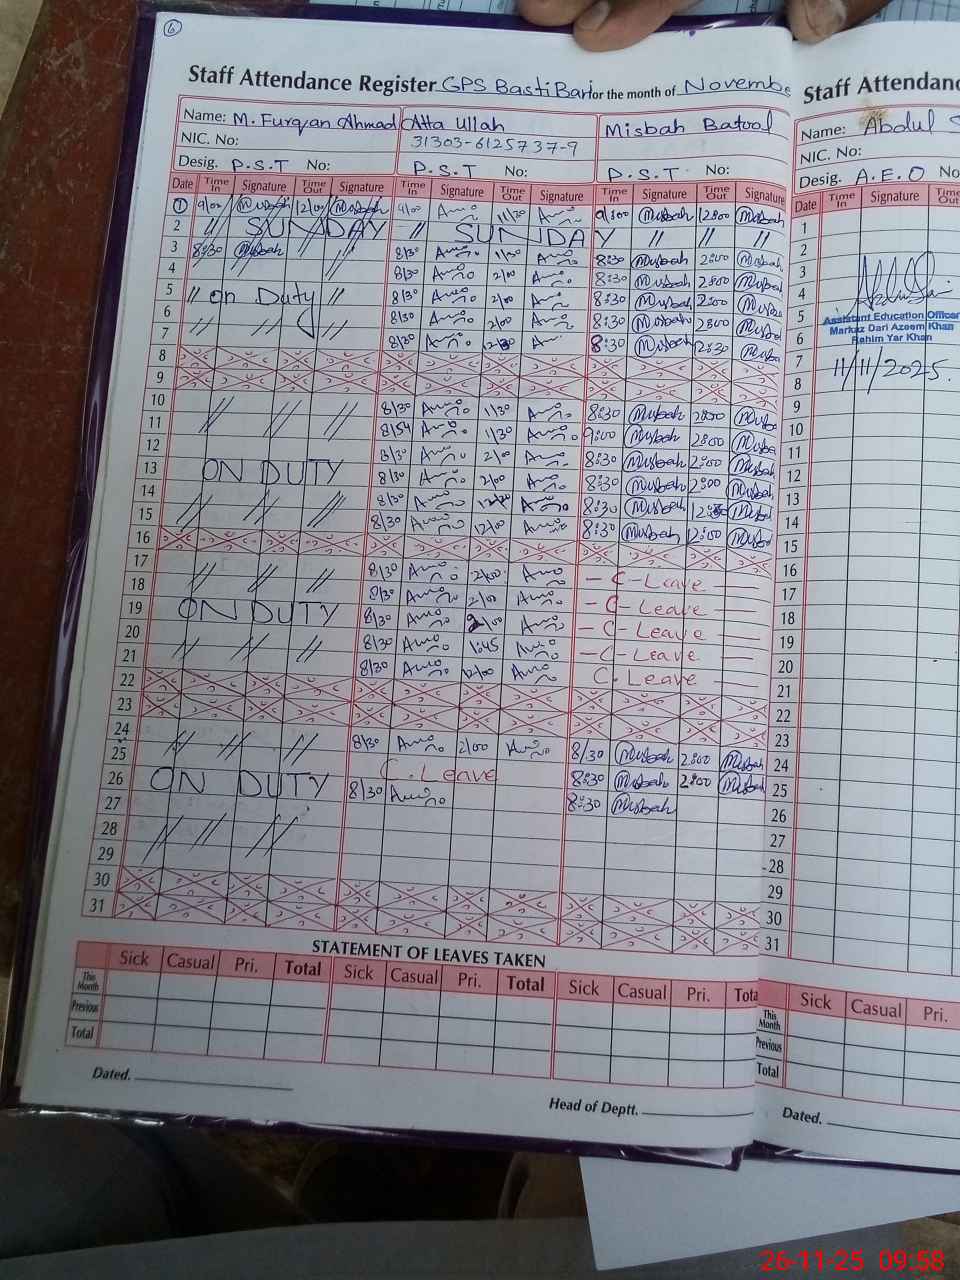 6
Staff Attendance Register GPS Basti Bari for the month of Novembe
Name: M. Furqan Ahmad Atta Ullah Misbah Batool
NIC. No: 31303-6125737-9
Desig. P.S.T No: P.S.T No: P.S.T No:
Date Time In Signature Time Out Signature Time In Signature Time Out Signature Time In Signature Time Out Signature
1 9/00 12/00 9/00 11/30 9:00 Misbah 12:00 Misbah
2 // SUNDAY // SUNDAY // // //
3 8:30 Misbah 8/30 11/30 8:30 Misbah 2:00 Misbah
4 8/30 2/00 8:30 Misbah 2:00 Misbah
5 // On Duty // 8/30 2/00 8:30 Misbah 2:00 Misba
6 8/30 2/00 8:30 Misbah 2:00 Misba
7 // // // 8/30 8:30 Misbah 12:30 Misba
8
9
10 // // // 8/30 1/30 8:30 Misbah 2:00 Misba
11 8/54 1/30 9:00 Misbah 2:00 Misba
12 8/30 2/00 8:30 Misbah 2:00 Misbah
13 ON DUTY 8/30 2/00 8:30 Misbah 2:00 Misbah
14 // // // 8/30 8:30 Misbah Misbah
15 8/30 12/00 8:30 Misbah 12:00 Misba
16
17 8/30 2/00 - C-Leave
18 // // // 8/30 2/00 - C-Leave
19 ON DUTY 8/30 2/00 - C-Leave
20 8/30 1:45 - C-Leave
21 // // // 8/30 12/00 C.Leave
22
23
24 // // // 8/30 2/00 8/30 Misbah 2:00 Misbah
25 C.Leave 8:30 Misbah 2:00 Misbah
26 ON DUTY 8/30 8:30 Misbah
27
28 // // //
29
30
31
STATEMENT OF LEAVES TAKEN
Sick Casual Pri. Total Sick Casual Pri. Total Sick Casual Pri. Tota
This Month
Previous
Total
Dated.
Head of Deptt.
Staff Attendanc
Name: Abdul S
NIC. No:
Desig. A.E.O No
Date Time In Signature Time Out
1
2
3
4
5
6
7
8
9
10
11
12
13
14
15
16
17
18
19
20
21
22
23
24
25
26
27
28
29
30
31
Assistant Education Officer
Markaz Dari Azeem Khan
Rahim Yar Khan
11/11/2025.
Sick Casual Pri.
This Month
Previous
Total
Dated.
26-11-25 09:58